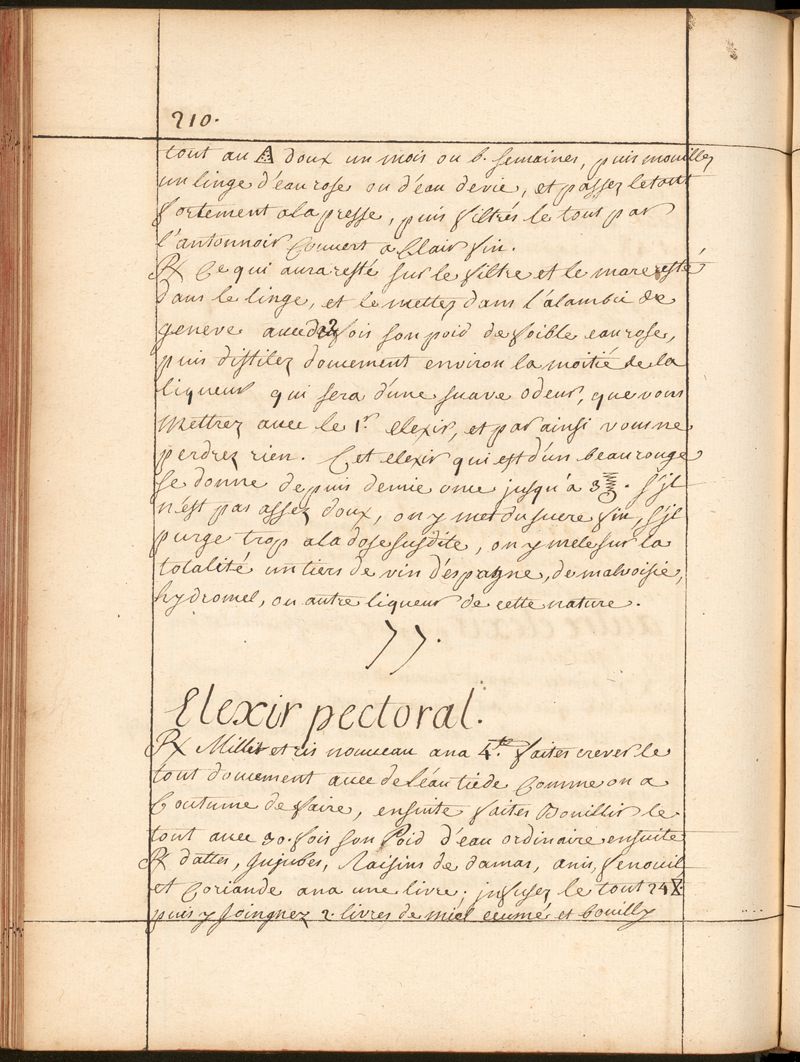 210.
tout au 🜂 doux un mois ou 6. semaines, puis mouillez
un linge d'eau rose ou d'eau de vie, et passez le tout
fortement a la presse, puis filtrés le tout par
l'antonnoir Couvert a Clair fin.
℞ Ce qui aura resté sur le filtre et le marc resté
dans le linge, et le mettez dans l'alambic de
geneve avec fois son poid de foible eau rose,
puis distilez doucement environ la moitié de la
liqueur qui sera d'une suave odeur, que vous
mettrez avec le 1.r elexir, et par ainsi vous ne
perdrez rien. Cet elexir qui est d'un beau rouge
se donne depuis demie once jusqu'à 3 . s'jl
n'est pas assez doux, on y met du sucre fin, s'jl
purge trop a la dose susdite, on y mele sur la
totalité un tiers de vin d'espagne, de malvoisie,
hydromel, ou autre liqueur de cette nature.
77.
Elexir pectoral.
℞ Millet et ris nouveau ana 4.tt faites crever le
tout doucement avec de l'eau tiede Comme on a
Coutume de faire, ensuite faites Bouillir le
tout avec 30. fois son Poid d'eau ordinaire ensuite
℞ dattes, Jujubes, Raisins de damas, anis, fenouil
et Coriande ana une livre. jnfusez le tout 24
puis y Joingnez 2. livres de miel ecumé et bouilly